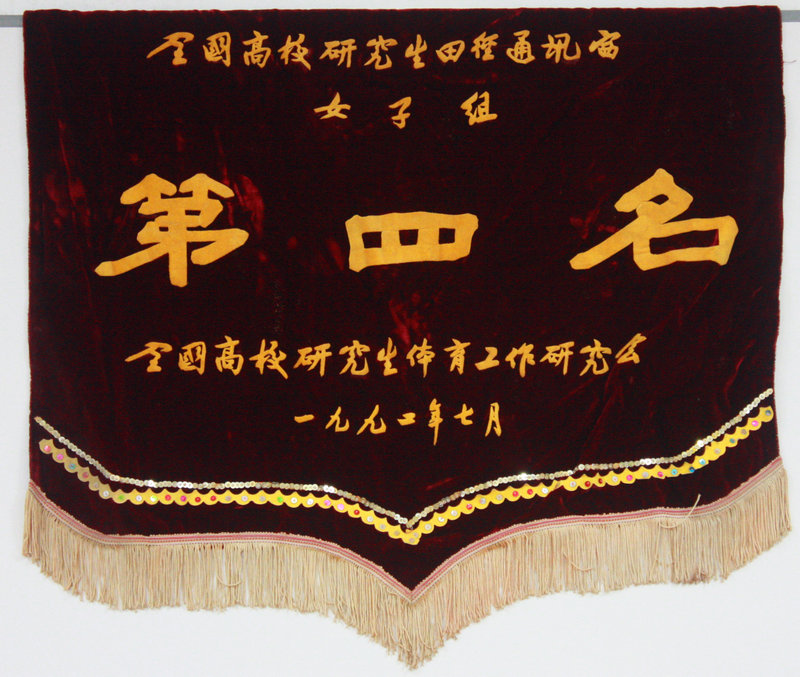 全國高校研究生田径通讯赛
女子组
第四名
全國高校研究生体育工作研究会
一九九二年七月